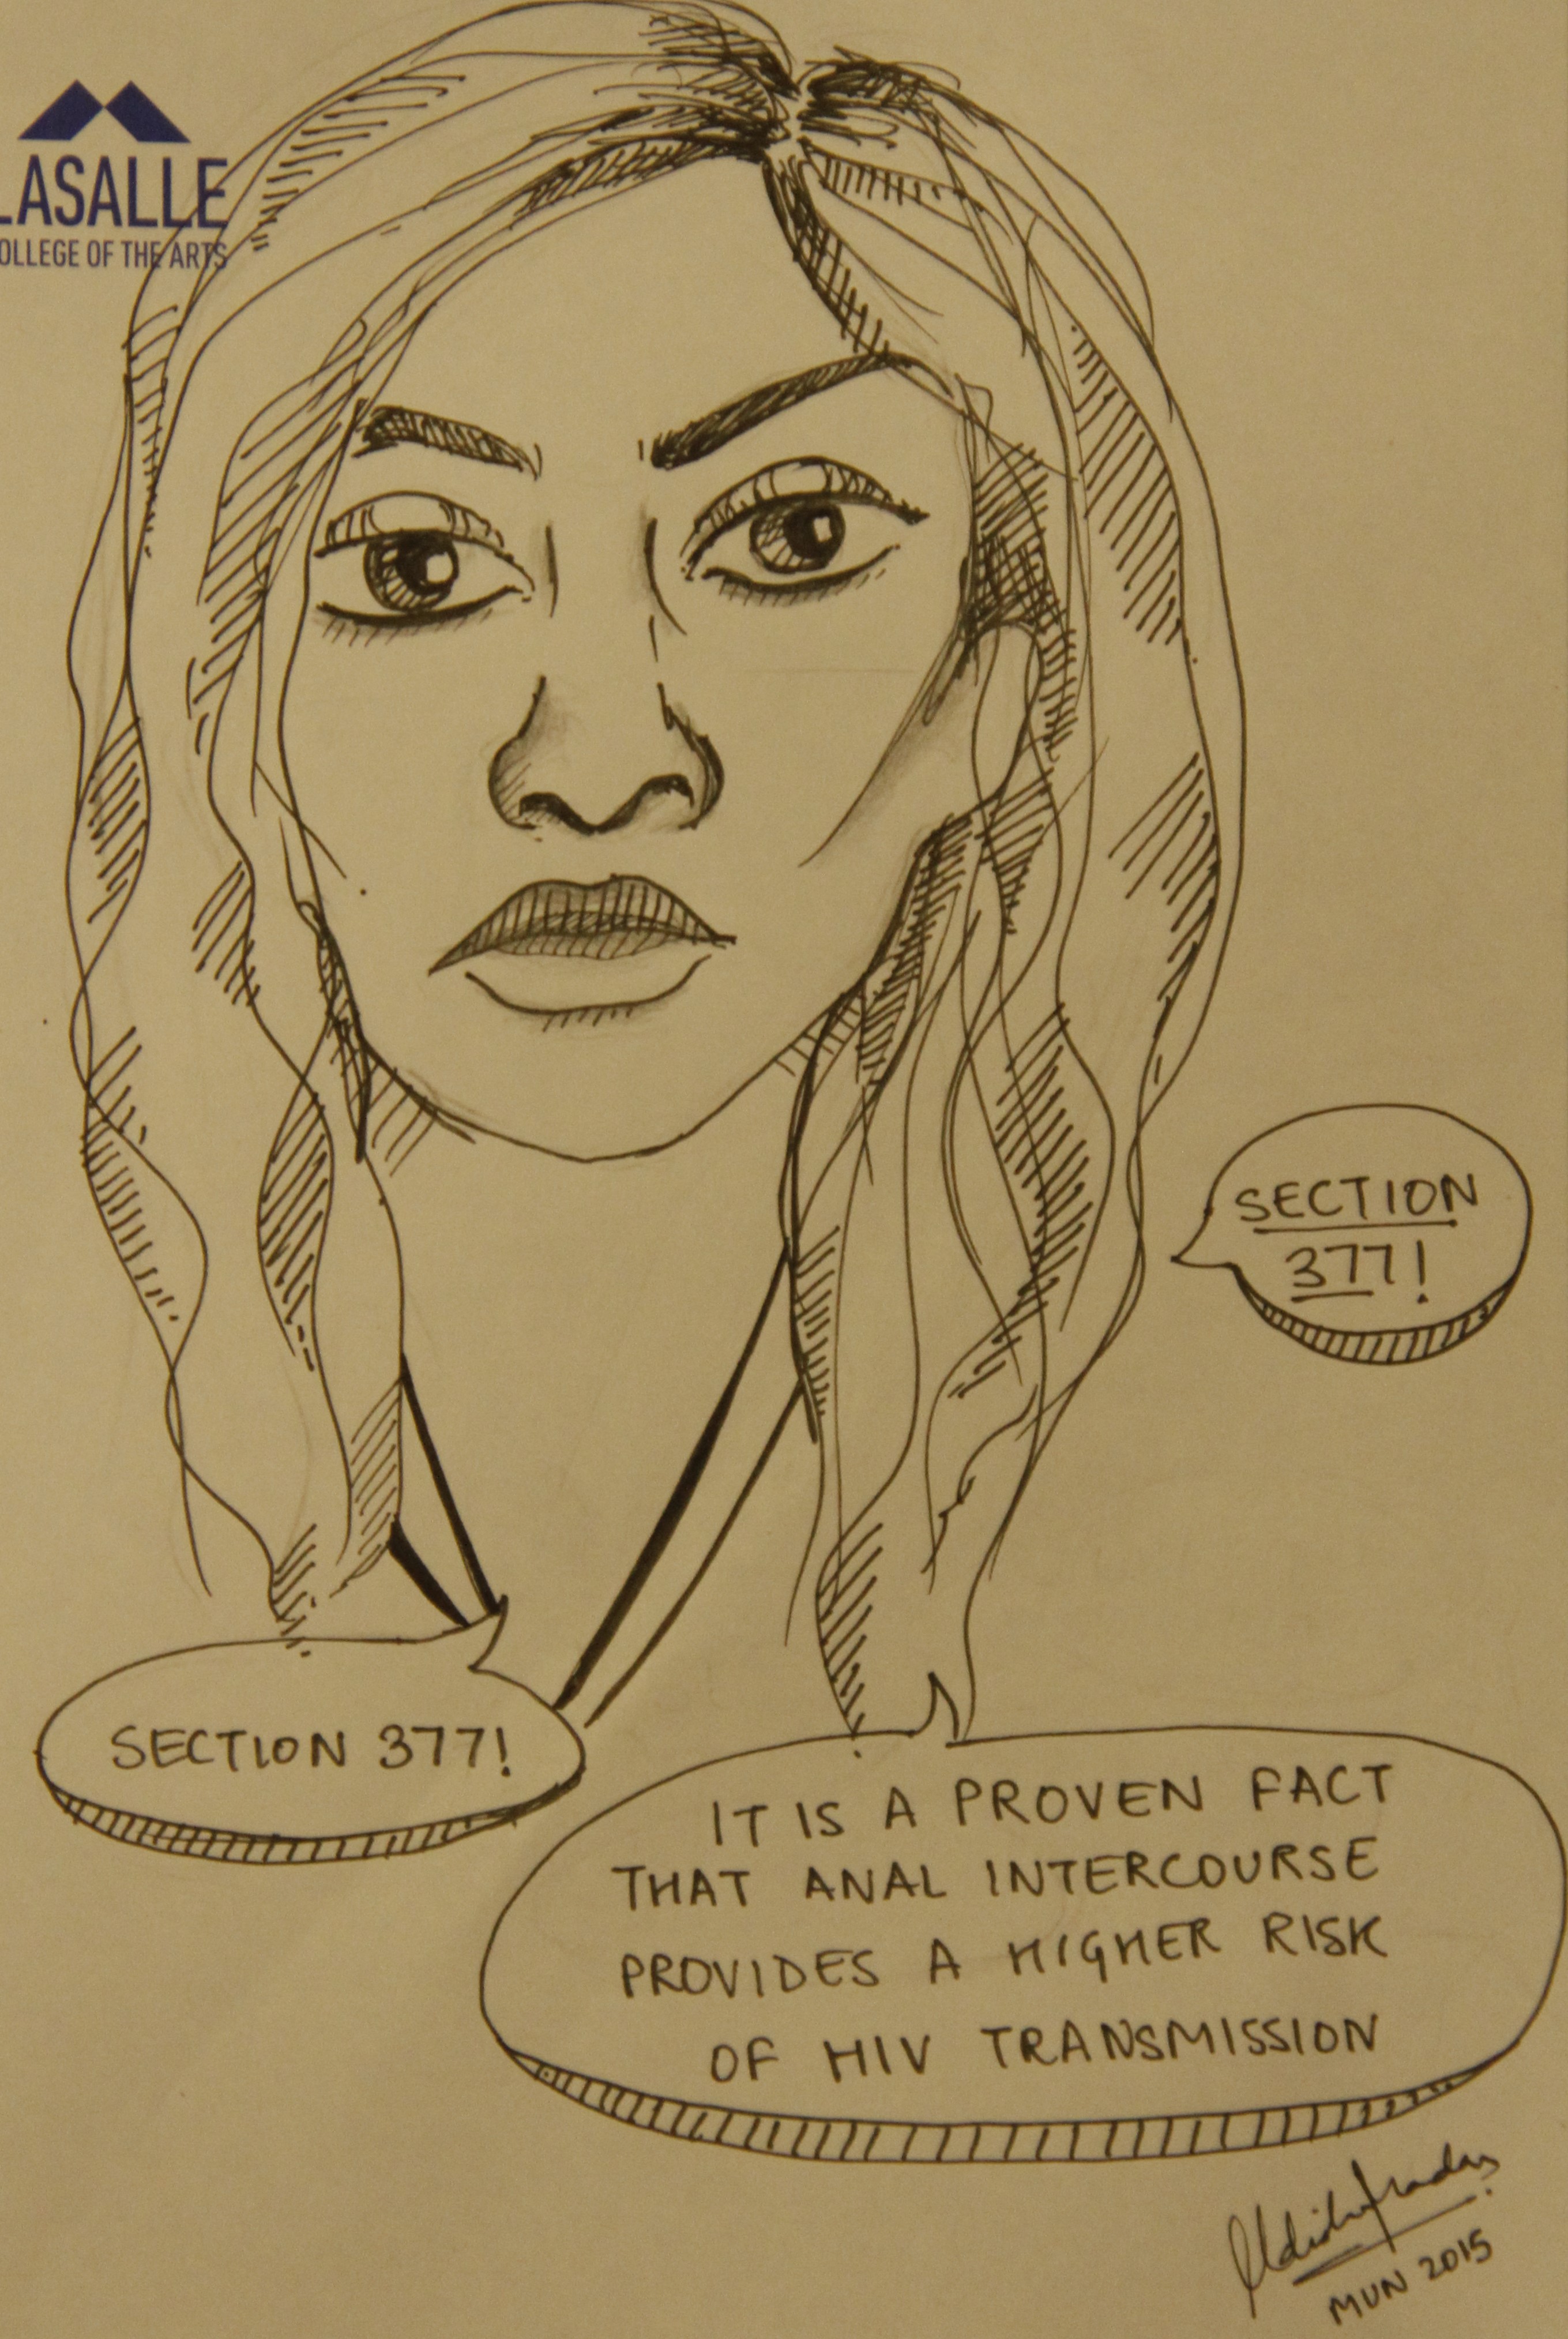 LASALLE
COLLEGE OF THE ARTS
SECTION
377!
SECTION 377!
IT IS A PROVEN FACT
THAT ANAL INTERCOURSE
PROVIDES A HIGHER RISK
OF HIV TRANSMISSION
MUN 2015